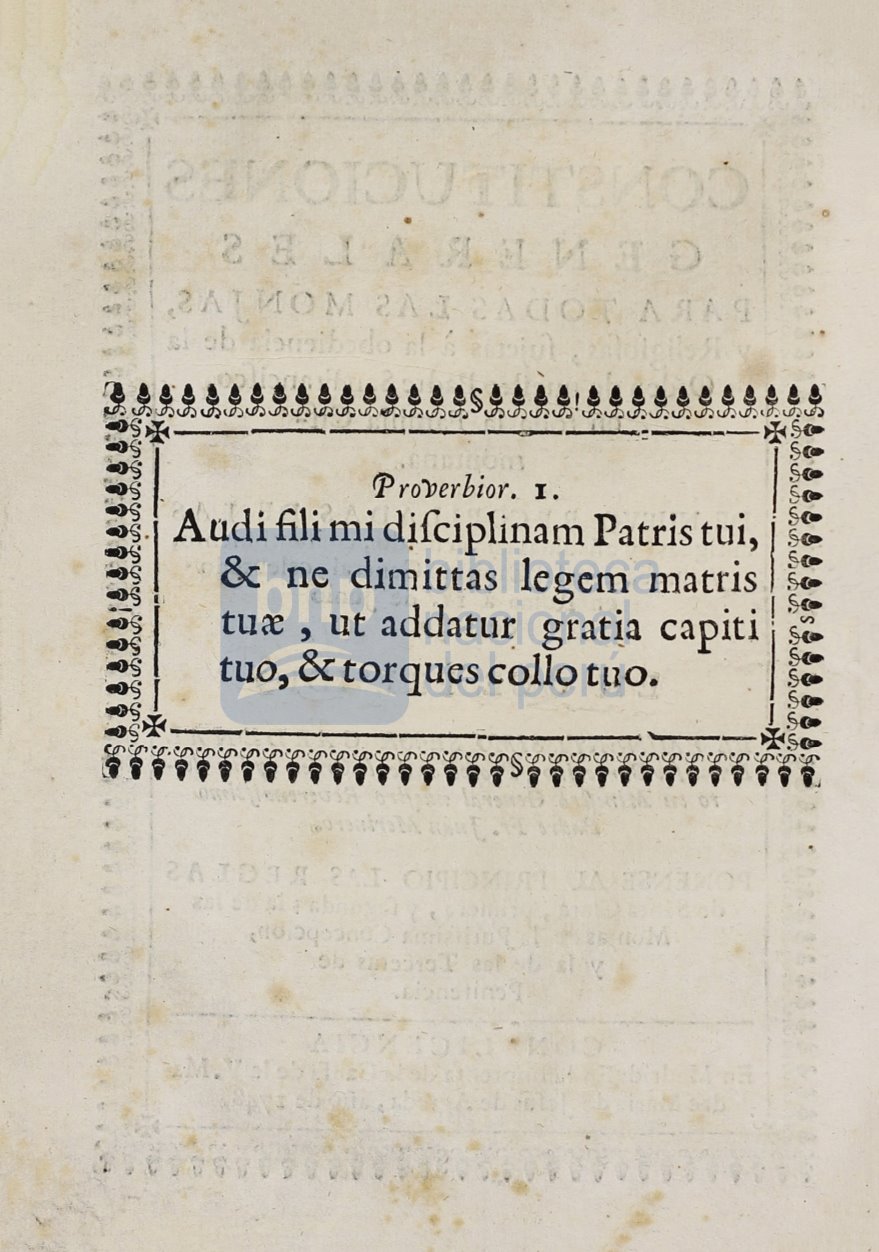 Proverbior. 1.
Audi fili mi diſciplinam Patris tui,
& ne dimittas legem matris
tuæ , ut addatur gratia capiti
tuo, & torques collo tuo.
biblioteca
nacional
del perú